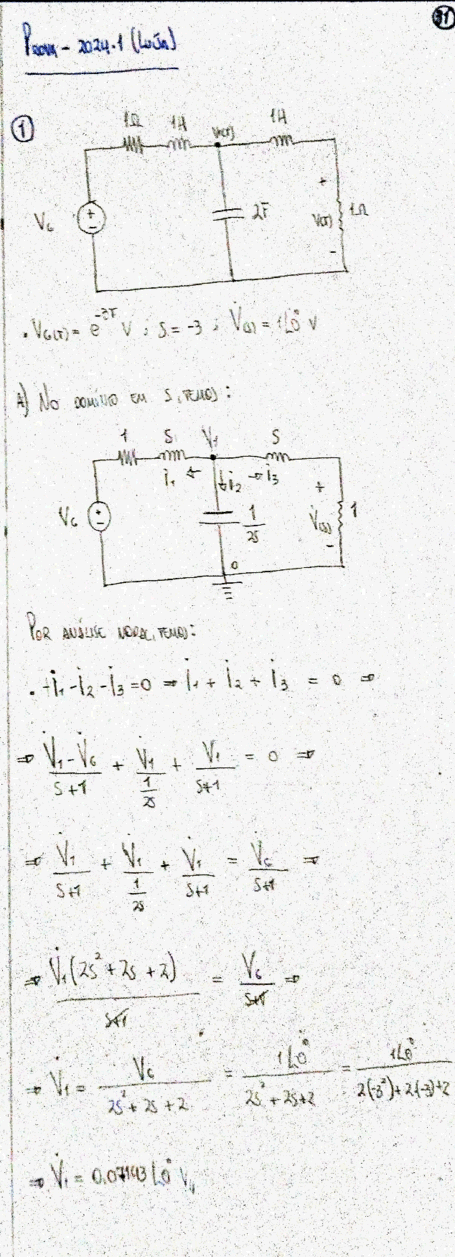 31
Prova - 2024.1 (Luiz)
1
1Ω 1H V1(t) 1H
VG + - 2F + V(t) - 1Ω
. VG(t) = e^-3t V ; S = -3 ; V̇G(s) = 1∠0° V
A) No domínio em S, temos:
1 S V1 S
i1 i2 i3
VG + - 1/2S + V̇(s) - 1
0
Por análise nodal, temos:
. -i̇1 - i̇2 - i̇3 = 0 ⇒ i̇1 + i̇2 + i̇3 = 0 ⇒
⇒ (V̇1 - V̇G)/(S+1) + V̇1/(1/2S) + V̇1/(S+1) = 0 ⇒
⇒ V̇1/(S+1) + V̇1/(1/2S) + V̇1/(S+1) = V̇G/(S+1) ⇒
⇒ V̇1(2S² + 2S + 2)/(S+1) = V̇G/(S+1) ⇒
⇒ V̇1 = VG/(2S² + 2S + 2) = 1∠0°/(2S² + 2S + 2) = 1∠0°/(2(-3²) + 2(-3) + 2)
⇒ V̇1 = 0,07143∠0° V//